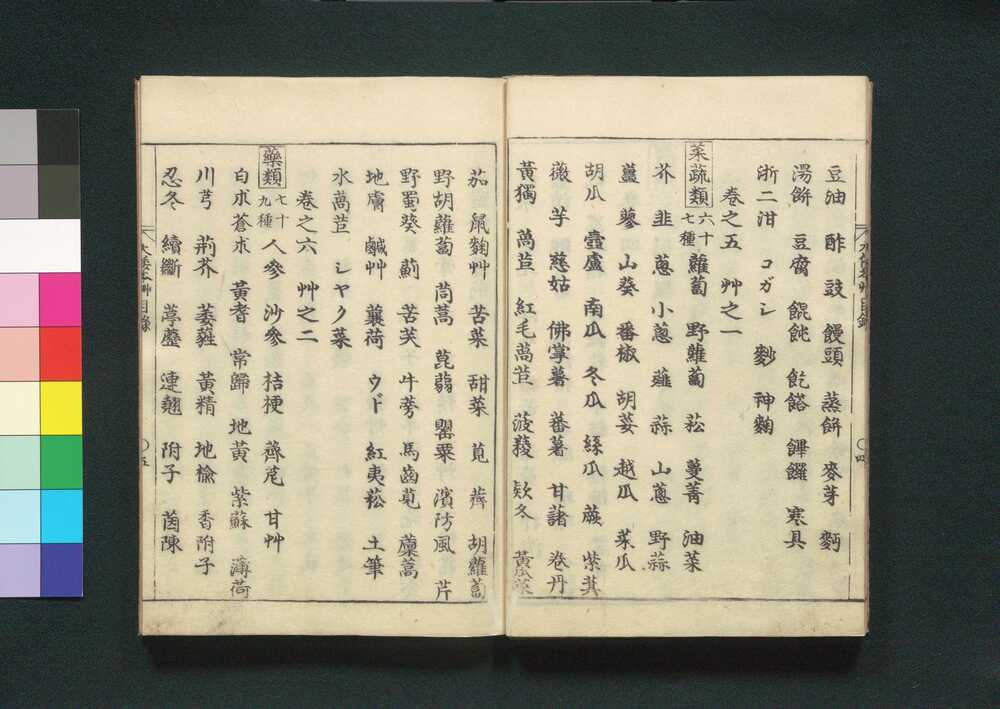 豆油 酢 豉 饅頭 蒸餅 麥芽 麪
湯餅 豆腐 餛飩 飥餎 饆饠 寒具
浙二泔 コガシ 麨 神麴
卷之五 艸之一
菜蔬類 六十七種 蘿蔔 野蘿蔔 菘 蔓菁 油菜
芥 韭 蔥 小蔥 薤 蒜 山蔥 野蒜
薑 蓼 山葵 番椒 胡荽 越瓜 菜瓜
胡瓜 壼盧 南瓜 冬瓜 絲瓜 蕨 紫萁
薇 芋 慈姑 佛掌薯 蕃薯 甘藷 卷丹
黃獨 萵苣 紅毛萵苣 菠薐 欵冬 黃瓜菜
大倭本艸 目錄 〇四
茄 鼠麴艸 苦菜 甜菜 莧 薺 胡蘿蔔
野胡蘿蔔 茼蒿 萞蒻 罌粟 濱防風 芹
野蜀葵 薊 苦芺 牛蒡 馬齒莧 蘪蒿
地膚 鹹艸 蘘荷 ウド 紅夷菘 土筆
水萵苣 シヤク菜
卷之六 艸之二
藥類 七十九種 人參 沙參 桔梗 薺苨 甘艸
白朮 蒼朮 黃耆 常歸 地黃 紫蘇 薄荷
川芎 荊芥 萎蕤 黃精 地榆 香附子
忍冬 續斷 葶藶 連翹 附子 茵陳
大倭本艸 目錄 〇五